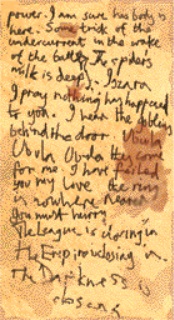 power. I am sure his body is
here. Some trick of the
undercurrent in the wake
of the battle. The spiders
milk is deep. Iszara
I pray nothing has happened
to you. I hear the
behind the door. Ubula
Ubula Ubula they come
for me I have failed
you my love the ring
is nowhere near
You must hurry
The League is closing in
The Empire closing in.
The Darkness is
closing